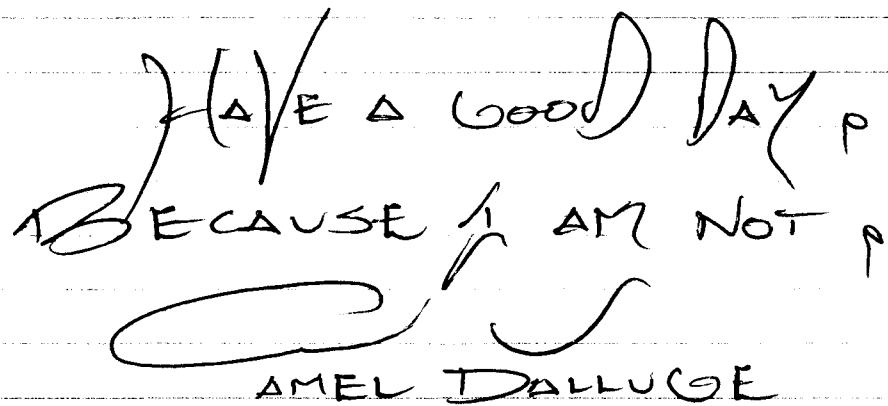 HAVE A GOOD DAY
BECAUSE I AM NOT
AMEL DALLUGE